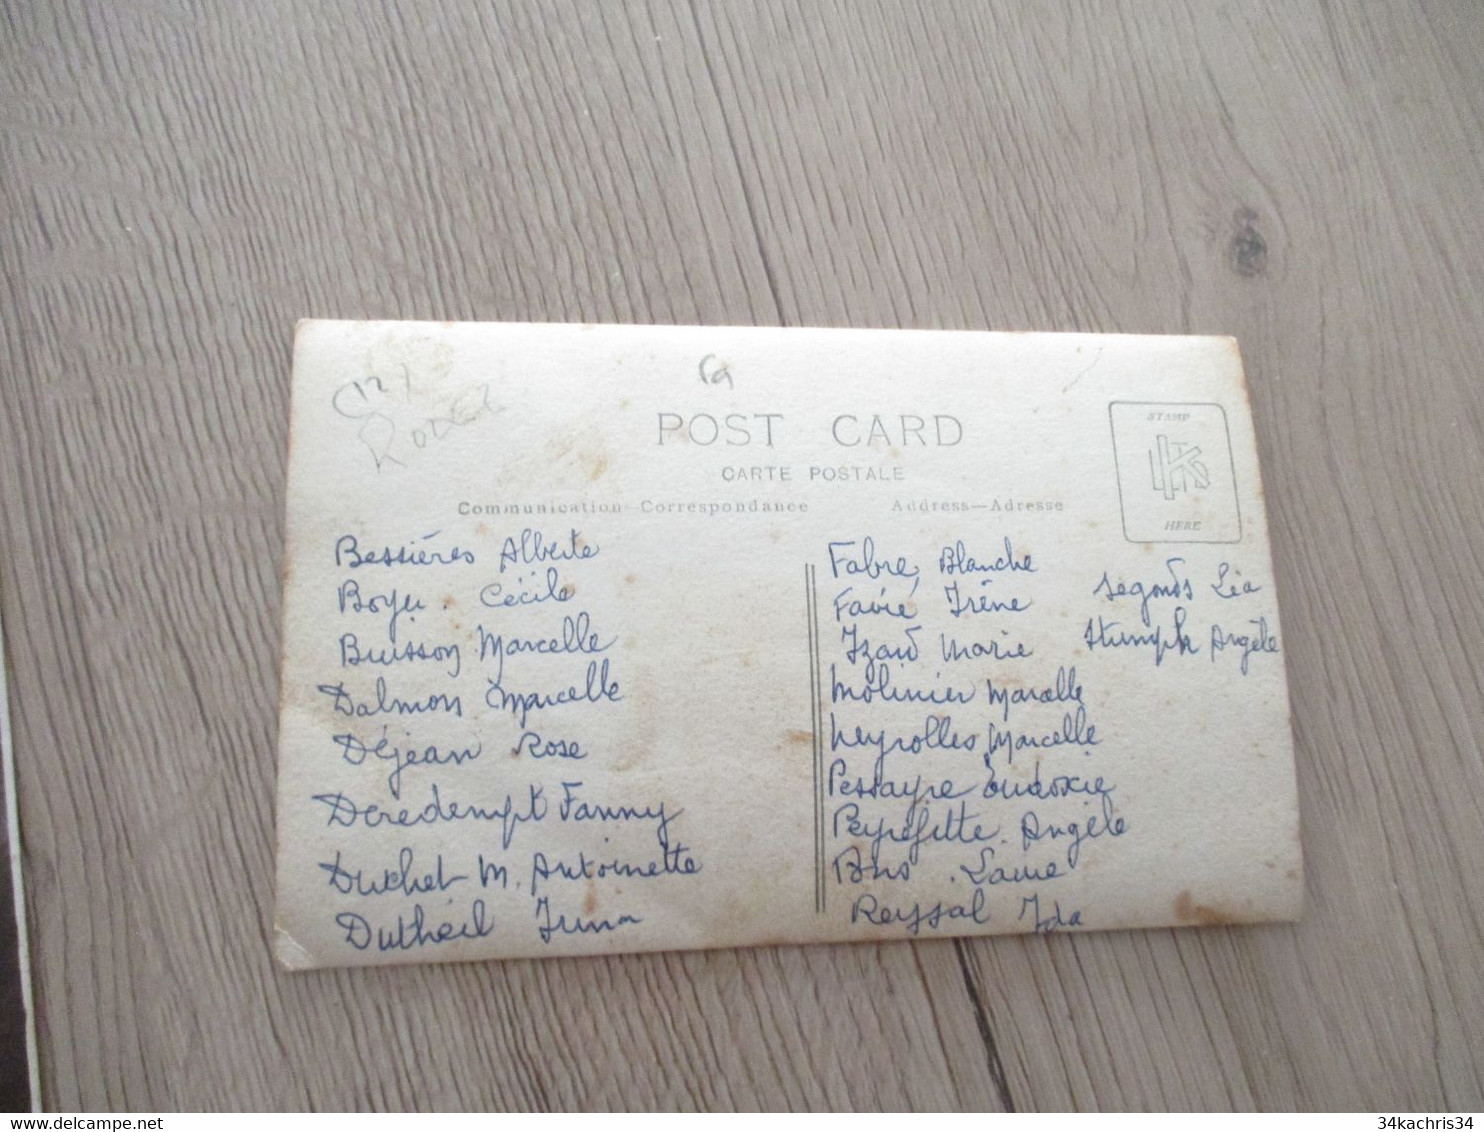 (12)
RODEZ
POST CARD
CARTE POSTALE
Communication—Correspondance
Address—Adresse
STAMP
HERE
Bessières Alberte
Boyer. Cécile
Buisson Marcelle
Dalmon Marcelle
Déjean Rose
Deredempt Fanny
Duchet M. Antoinette
Dutheil Irma
Fabre, Blanche
Favié, Irène
Izard Marie
Molinier Marcelle
Neyrolles Marcelle
Pessayre Eudoxie
Peyrefitte. Angèle
Pons . Laure
Reyssal Ida
Segonds Léa
Stumpk Angèle
34kachris34